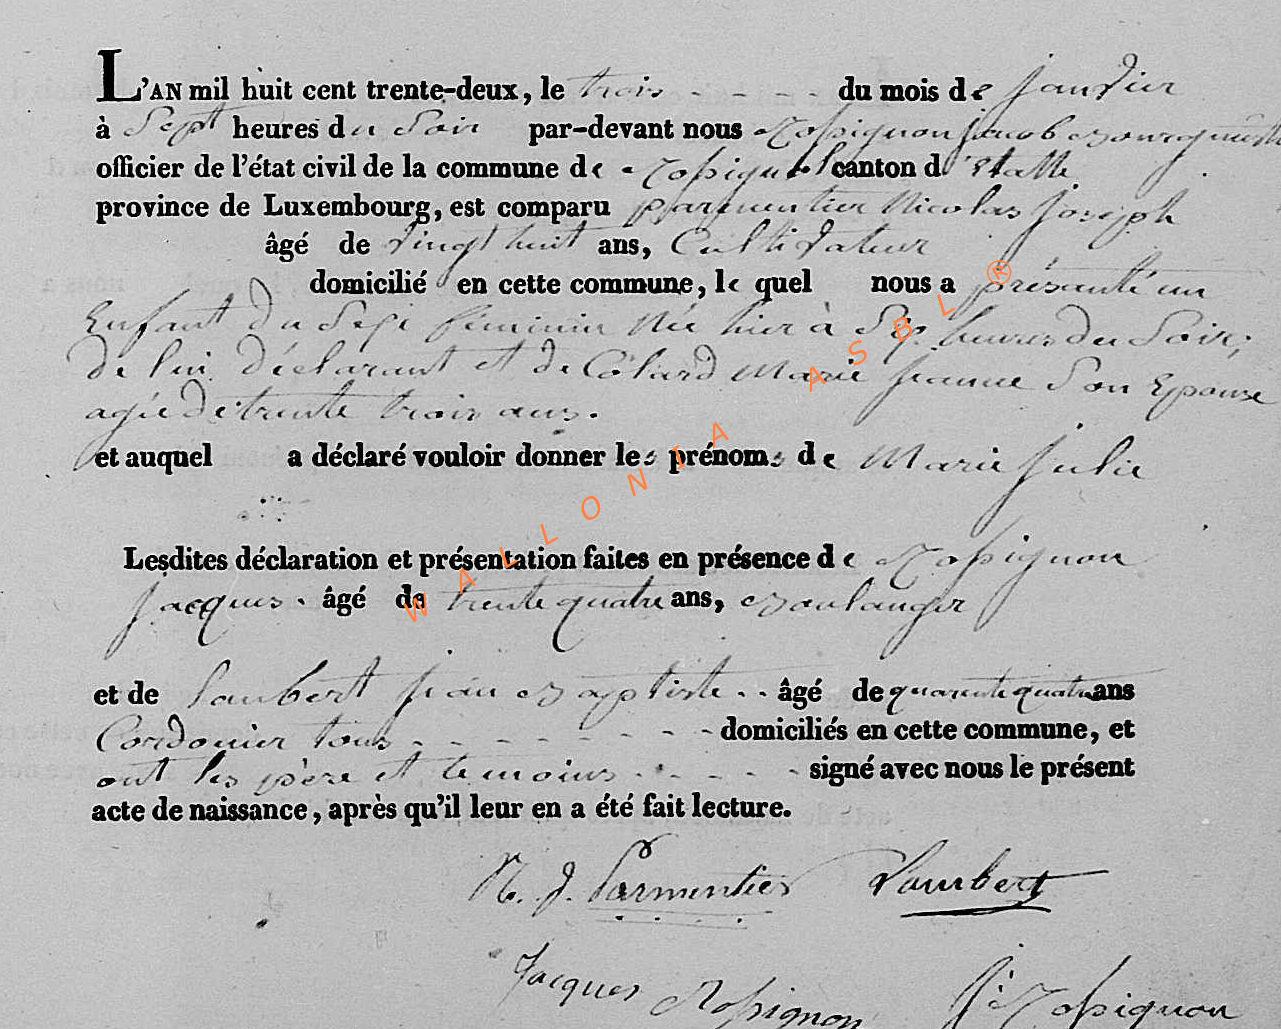 L'AN mil huit cent trente-deux, le trois - - - - - du mois de janvier
à Sept heures du Soir par-devant nous Rossignon Jacob Bourgmestre
officier de l'état civil de la commune de Rossignol canton d'Etalle
province de Luxembourg, est comparu parmentier Nicolas Joseph
âgé de vingt huit ans, Cultivateur
domicilié en cette commune, le quel nous a présenté un
Enfant du Sexe féminin Née hier à Six heures du Soir,
de lui déclarant et de Colard Marie jeanne Son Epouse
agée de trente trois ans.
et auquel a déclaré vouloir donner les prénoms de Marie Julie
Lesdites déclaration et présentation faites en présence de Rossignon
Jacques. âgé de trente quatre ans, Boulanger
et de Lambert jean Baptiste.. âgé de quarente quatre ans
Cordonier tous - - - - - - - - domiciliés en cette commune, et
ont les père et temoins - - - - - signé avec nous le présent
acte de naissance, après qu'il leur en a été fait lecture.
N. J. Parmentier Lambert
Jacques Rossignon J. Rossignon
WALLONIA ASBL ®